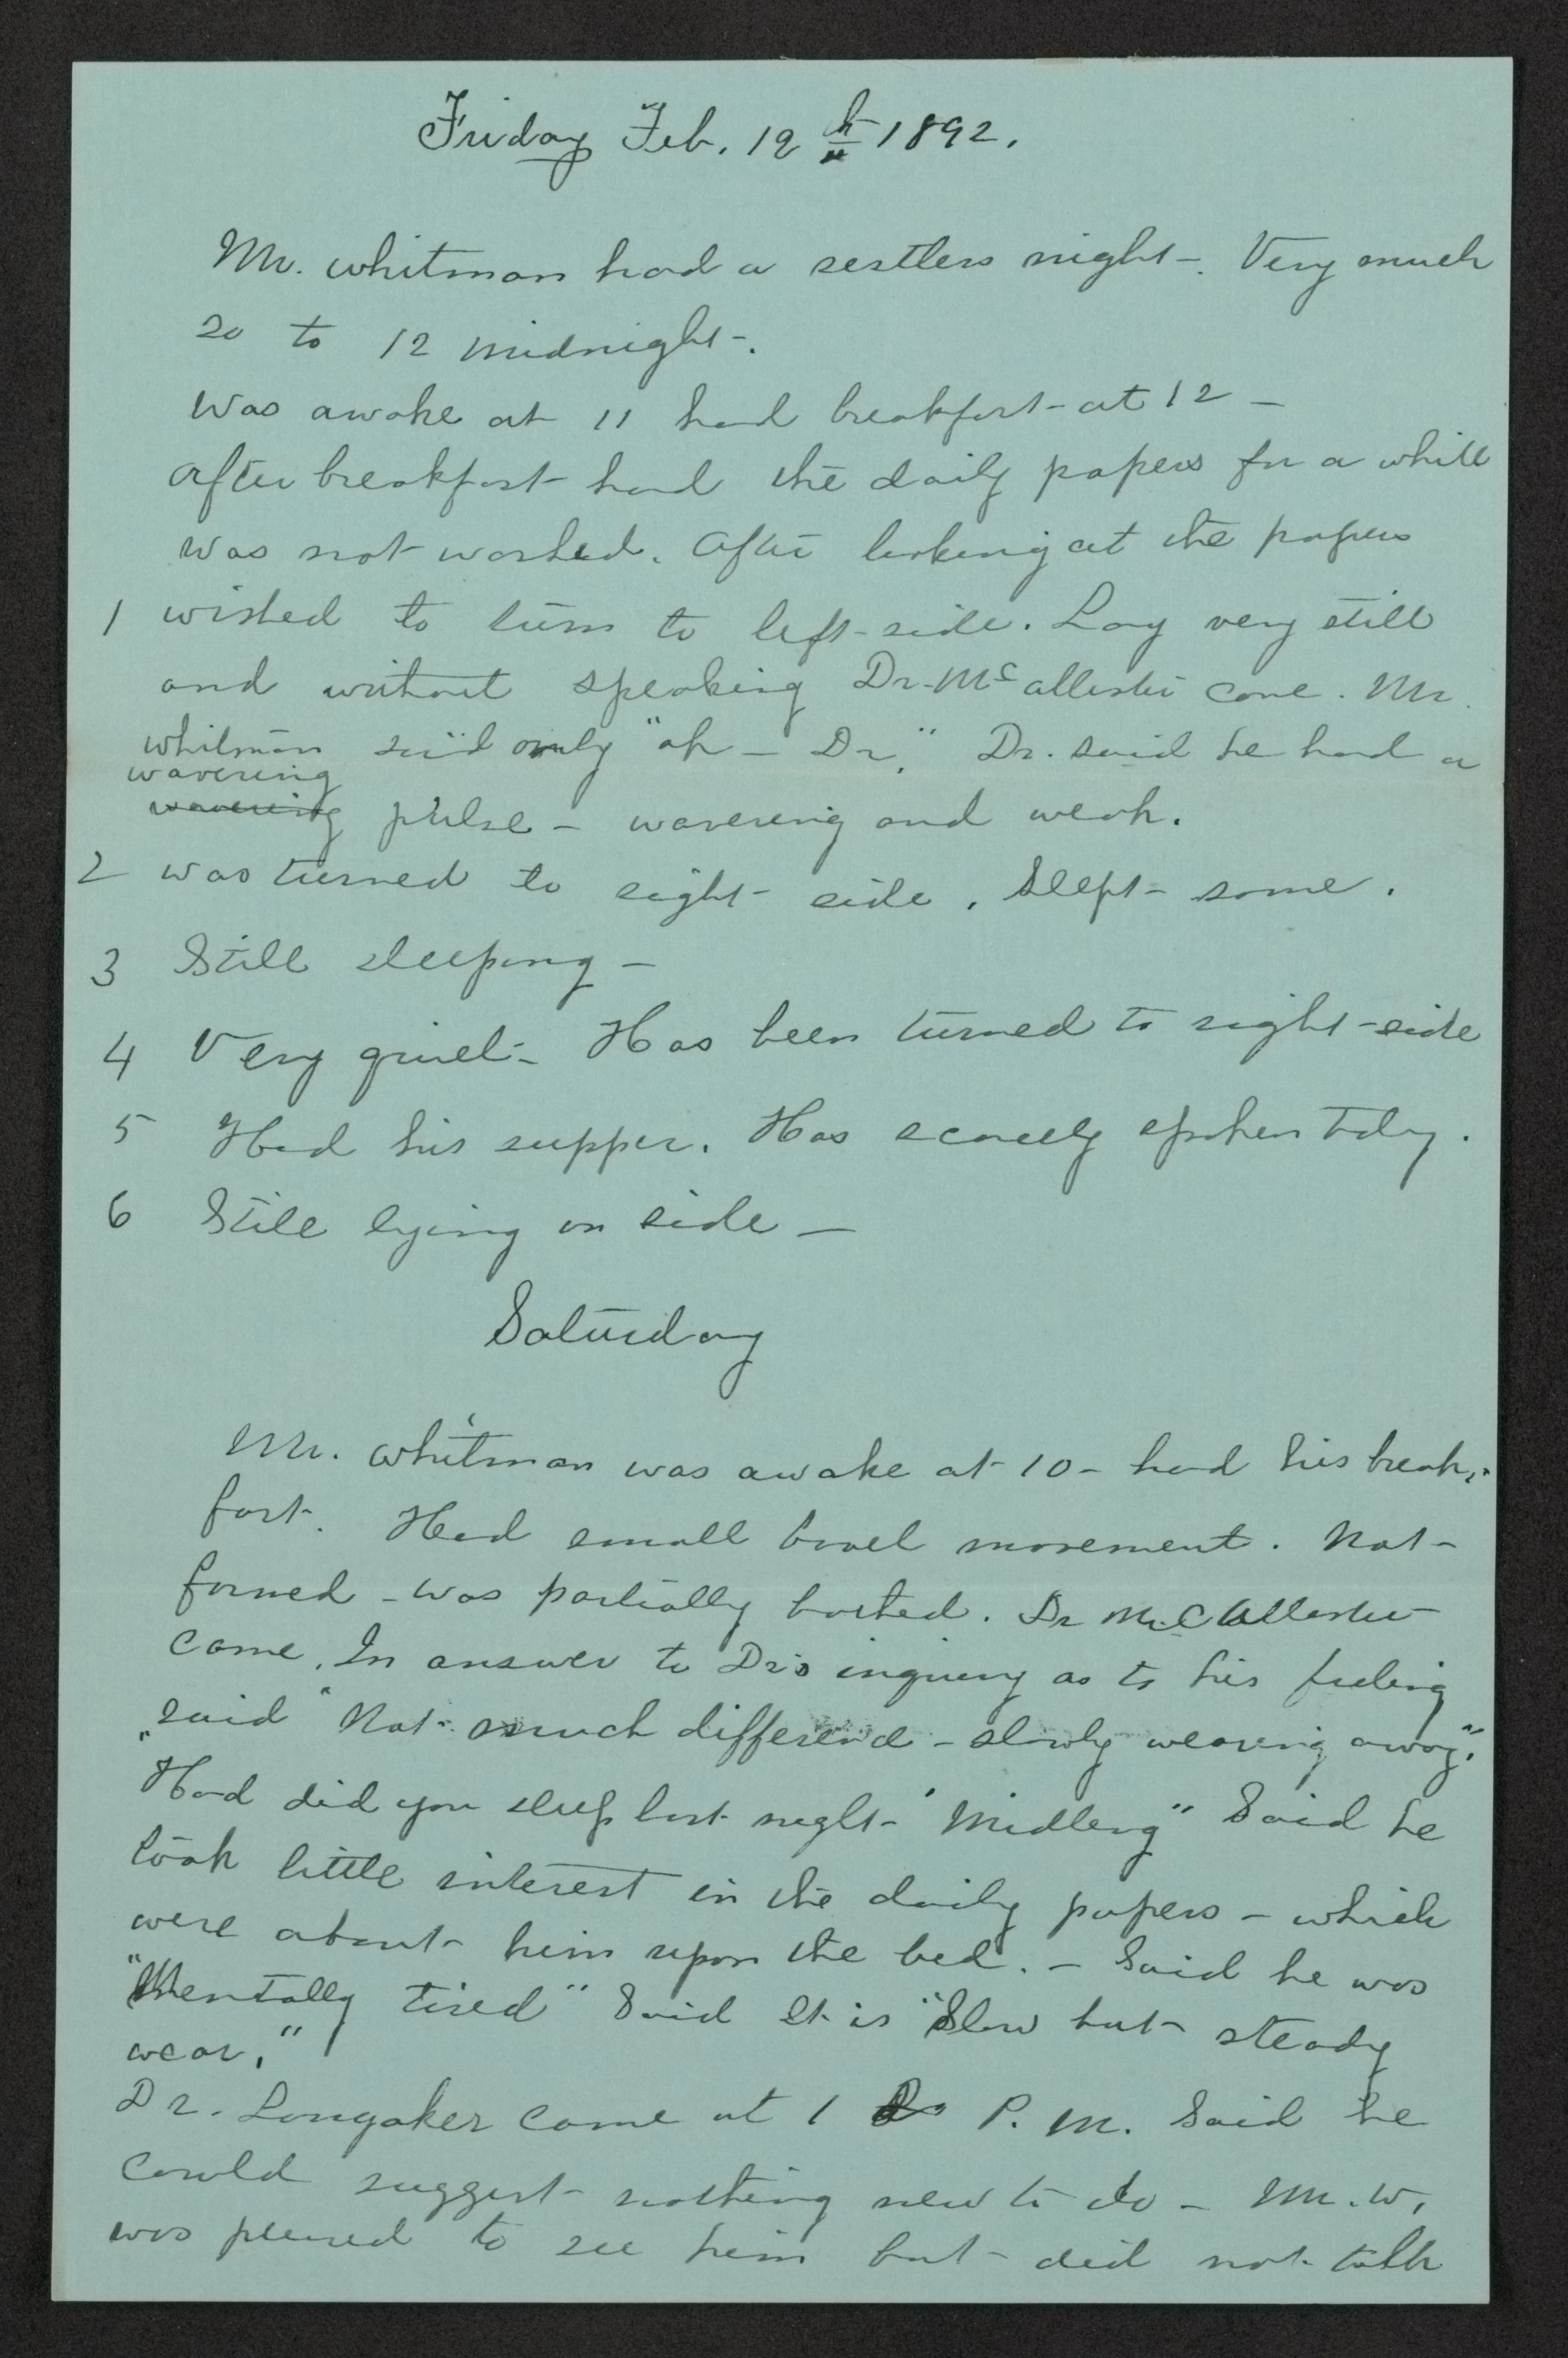 Friday Feb. 12th 1892.
Mr. Whitman had a restless night-. Very much
so to 12 midnight-.
Was awake at 11 had breakfast-at 12 -
After breakfast had the daily papers for a while
was not washed. After looking at the papers
1 wished to turn to left-side. Lay very still
and without speaking Dr. McAllister came. Mr.
Whitman said only "oh - Dr." Dr. said he had a
wavering
wavering pulse - wavering and weak.
2 was turned to right- side. Slept- some.
3 Still sleeping -
4 Very quiet- Has been turned to right-side
5 Had his supper. Has scarcely spoken today.
6 Still lying on side -
Saturday
Mr. Whitman was awake at 10 - had his break-
fast. Had small bowel movement. Not-
formed - was partially bathed. Dr McAllister
came. In answer to Dr's inquiry as to his feeling
said "Not much difference - slowly wearing away".
"Had did you sleep last night- "Midling" Said he
took little interest in the daily papers - which
were about- him upon the bed. - Said he was
"Mentally tired" Said It is "Slow but- steady
wear."
Dr. Longaker came at 1 P. M. Said he
could suggest- nothing new to do - Mr. W.
was pleased to see him but- did not talk